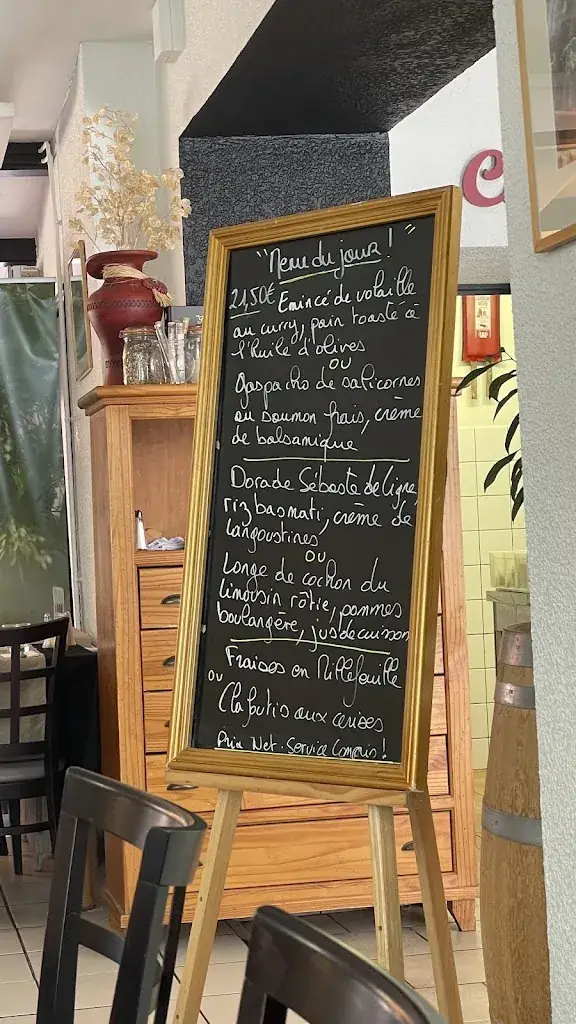 "Menu du jour !"
21,50€ Emincé de volaille
au curry, pain toasté à
l'huile d'olives
ou
Gaspacho de salicornes
au saumon frais, crème
de balsamique
Dorade Sébaste de ligne,
riz basmati, crème de
langoustines
ou
Longe de cochon du
limousin rôtie, pommes
boulangère, jus de cuisson
Fraises en Millefeuille
ou
Clafoutis aux cerises
Prix Net. Service Compris !
C